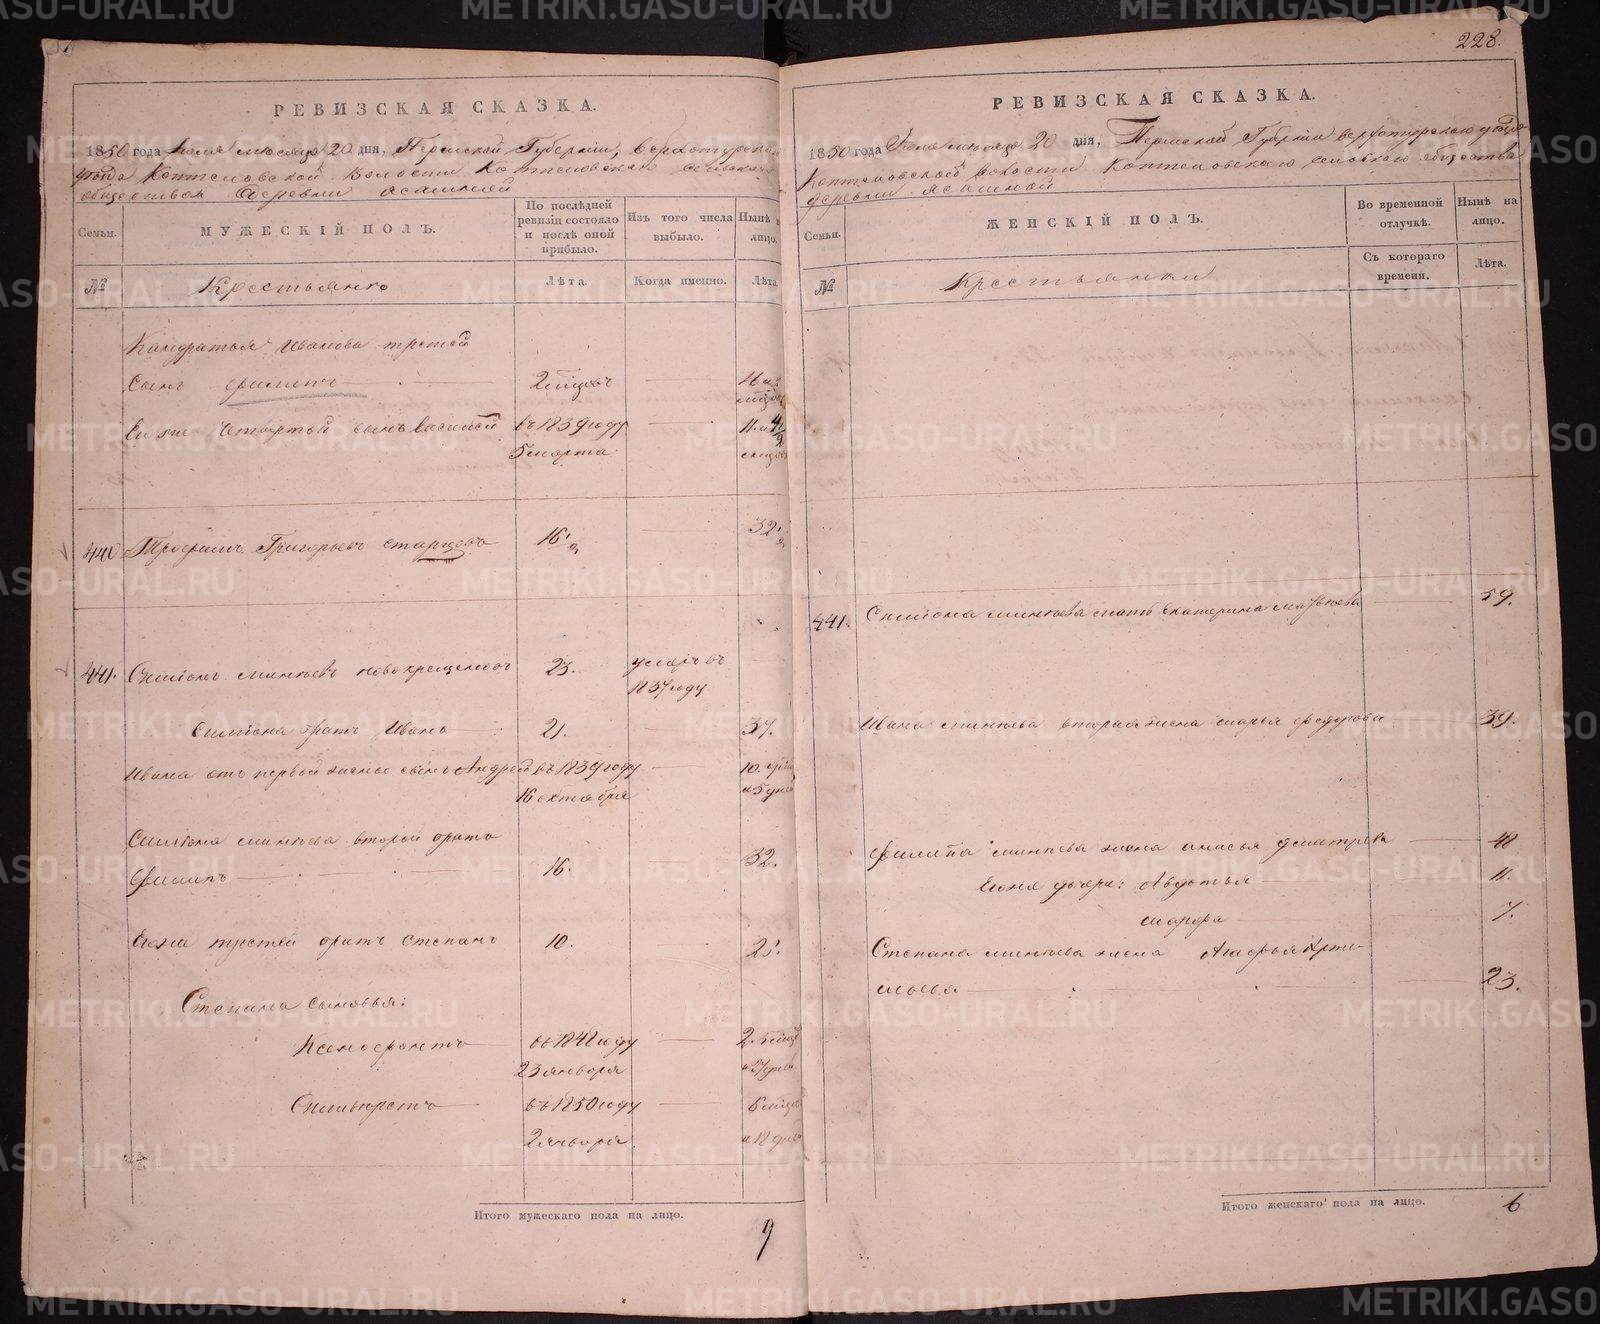 228.
РЕВИЗСКАЯ СКАЗКА.
1850 года Іюля мѣсяца 20 дня, Пермской Губерніи, Верхотурскаго
уѣзда Коптеловской Волости Коптеловскаго сельскаго
общества Деревни Ясашной
Семьи.
МУЖЕСКІЙ ПОЛЪ.
По послѣдней ревизіи состояло и послѣ оной прибыло.
Изъ того числа выбыло.
Нынѣ на лицо.
№
Крестьяне
Лѣта.
Когда именно.
Лѣта.
Кандратья Иванова третей
сынъ Филипъ 2 мѣсцовъ
Ево же четвертой сынъ Василей въ 1839 году
5 марта
440 Трофимъ Григорьевъ Старцовъ 16 32
441. Симіонъ Минѣевъ Новокрещеновъ 23. умеръ въ
1837 году
Симіона братъ Иванъ 21. 37.
Ивана отъ первой жены сынъ Андрей въ 1839 году
16 октября
Симіона Минѣева второй братъ
Филипъ 16. 32.
Ево же третей братъ Степанъ 10.
Степана сыновья:
Ксенофонтъ
23 января
Сильверстъ въ 1850 году
2 января
Итого мужескаго пола на лицо.
9
РЕВИЗСКАЯ СКАЗКА.
1850 года Іюля мѣсяца 20 дня, Пермской Губерніи Верхотурскаго уѣзда
Коптеловской волости Коптеловскаго сельскаго общества
деревни Ясашной
Семьи.
ЖЕНСКІЙ ПОЛЪ.
Во временной отлучкѣ.
Нынѣ на лицо.
№
Крестьянки
Съ котораго времени.
Лѣта.
441. Симіона Минѣева мать Екатерина Матвѣева 59.
Ивана Минѣева вторая жена Марья Федорова 39.
Филипа Минѣева жена Анисья Дмитрева
Ево же дочери: Авдотья 11.
Марфа 7.
Степана Минѣева жена Агафья Арте-
мьева 23.
Итого женскаго пола на лицо.
6
METRIKI.GASO-URAL.RU